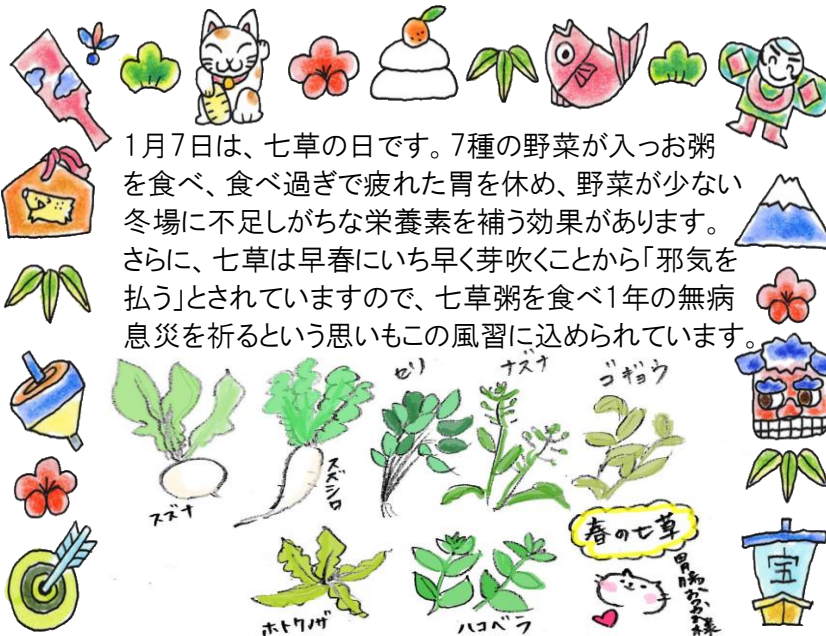 1月7日は、七草の日です。7種の野菜が入っお粥
を食べ、食べ過ぎで疲れた胃を休め、野菜が少ない
冬場に不足しがちな栄養素を補う効果があります。
さらに、七草は早春にいち早く芽吹くことから「邪気を
払う」とされていますので、七草粥を食べ1年の無病
息災を祈るという思いもこの風習に込められています。
セリ
ナズナ
ゴギョウ
スズナ
スズシロ
春の七草
ホトケノザ
ハコベラ
胃腸
宝